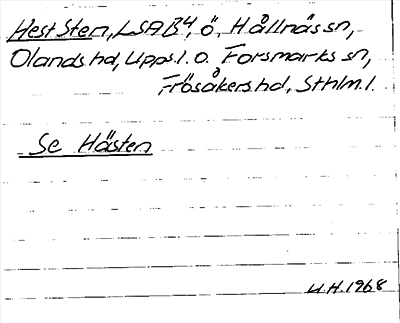 Hest Sten, LSA B4, ö, Hållnäs sn,
Olands hd, Upps. l. o. Forsmarks sn,
Frösåkers hd, Sthlm. l.
Se Hästen
U.H. 1968